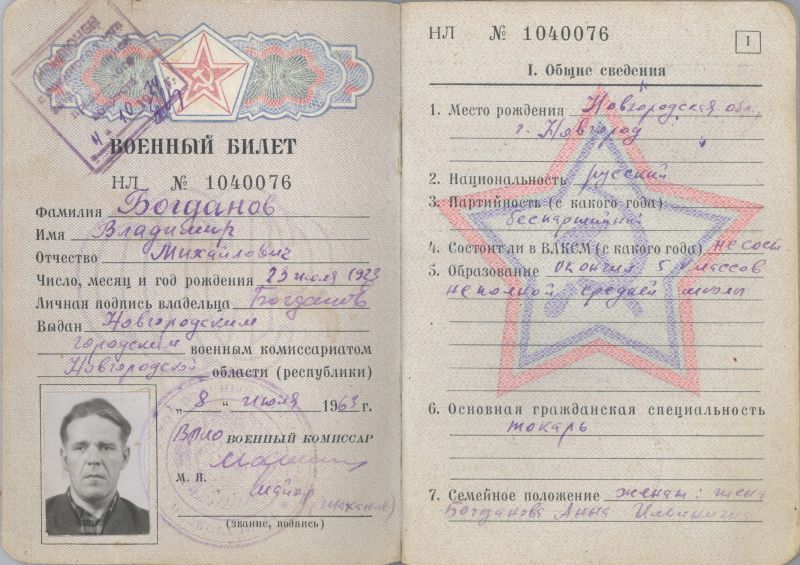 ВОЕННЫЙ БИЛЕТ
НЛ № 1040076
Фамилия Богданов
Имя Владимир
Отчество Михайлович
Число, месяц и год рождения 23 июля 1923
Личная подпись владельца Богданов
Выдан Новгородским
городским военным комиссариатом
Новгородской области (республики)
„ 8 “ июля 1963 г.
ВОЕННЫЙ КОМИССАР
М. П.
майор
(звание, подпись)
НЛ № 1040076
1
I. Общие сведения
1. Место рождения Новгородская обл.,
г. Новгород
2. Национальность русский
3. Партийность (с какого года)
беспартийный
4. Состоит ли в ВЛКСМ (с какого года) не сост.
5. Образование окончил 5 классов
неполной средней школы
6. Основная гражданская специальность
токарь
7. Семейное положение женат: жена
Богданова Анна Ильинична